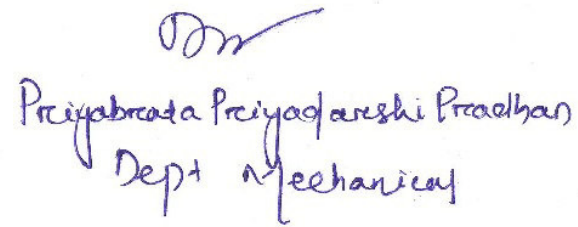 Priyabrata Priyadarshi Pradhan
Dept Mechanical